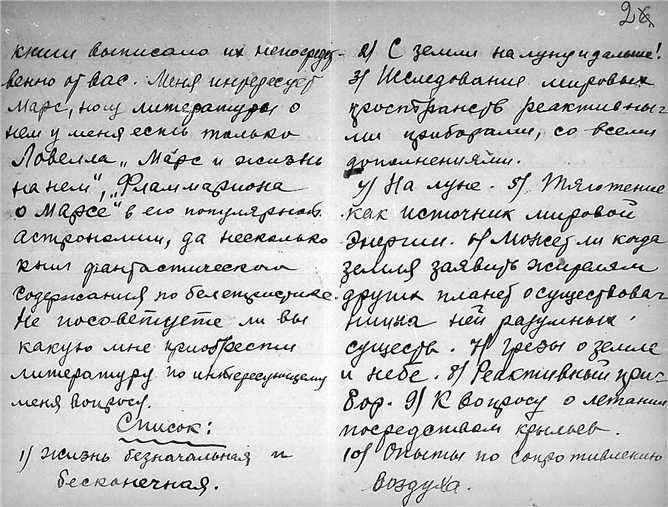 26
книги выписало их непосредст-
венно от вас. Меня интересует
Марс, но у литературы о
нем у меня есть только
Ловелла „Марс и жизнь
на нем", „Фламмариона
о Марсе" в его популярной
астрономии, да несколько
книг фантастического
содержания по белетристике.
Не посоветуете ли вы
какую мне приобрести
литературу по интересующему
меня вопросу.
Список:
1) Жизнь безначальная и
бесконечная.
2) С земли на луну и дальше!
3) Иследования мировых
пространств реактивны-
ми приборами, со всеми
дополнениями.
4) На луне. 5) Тяготение
как источник мировой
энергии. 6) Может ли когда
земля заявить жителям
других планет о существова-
нии на ней разумных
существ. 7) Грезы о земле
и небе. 8) Реактивный при-
бор. 9) К вопросу о летании
посредством крыльев.
10) Опыты по сопротивлению
воздуха.